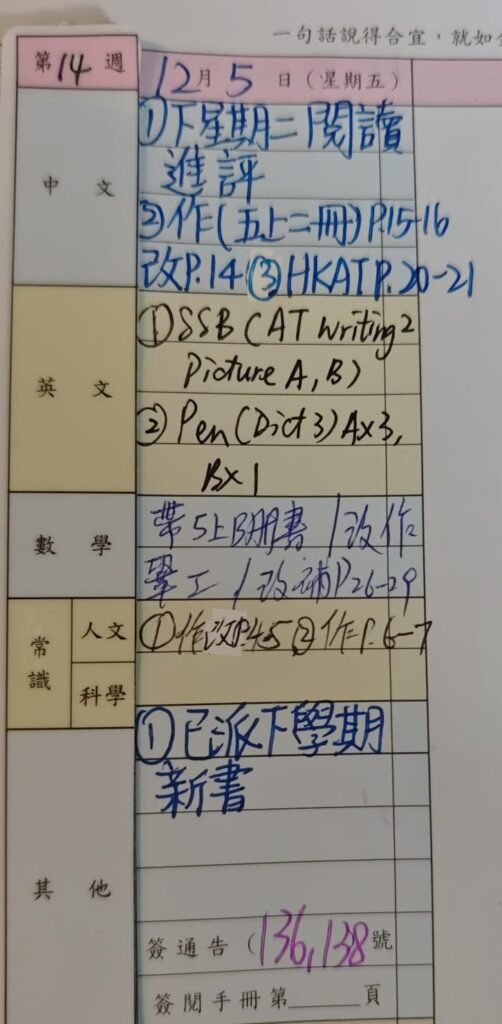 一句話說得合宜，就如金
第14週 12月5日（星期五）
中文
①下星期二閱讀
進評
②作(五上二冊)P.15-16
改P.14 ③HKAT P.20-21
英文
①SSB (AT writing 2
Picture A, B)
② Pen (Dict 3) A×3,
B×1
數學
帶5上B冊書 / 改作
畢工 / 改補P26-29
常識
人文
①作改P.4-5 ②作P.6-7
科學
其他
①已派下學期
新書
簽通告（136,138號
簽閱手冊第______頁